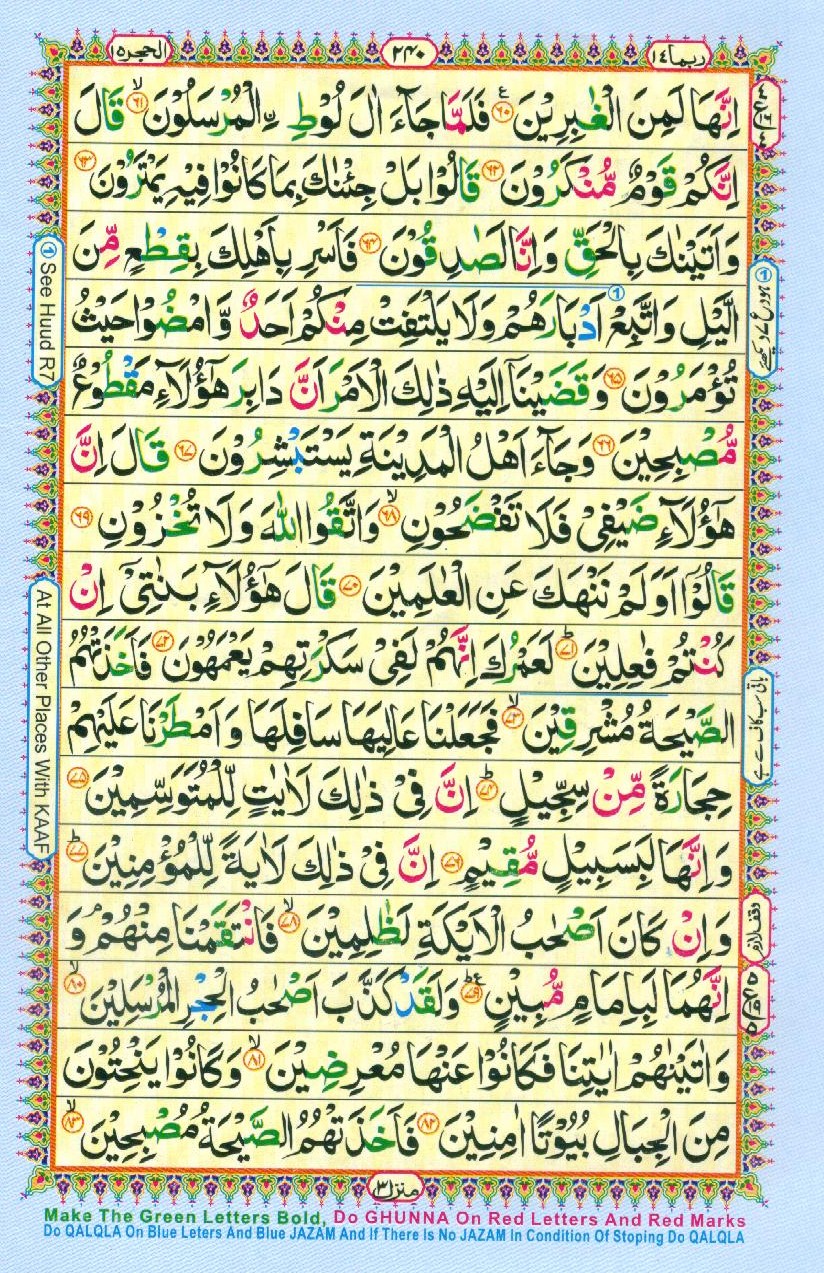 ربما ١٤
٢٤٠
الحجر ١٥
اِنَّهَا لَمِنَ الْغٰبِرِيْنَ ۞٦٠ فَلَمَّا جَآءَ اٰلَ لُوْطِ ِۨالْمُرْسَلُوْنَ ۙ٦١ قَالَ
اِنَّكُمْ قَوْمٌ مُّنْكَرُوْنَ ٦٢ قَالُوْا بَلْ جِئْنٰكَ بِمَا كَانُوْا فِيْهِ يَمْتَرُوْنَ ٦٣
وَاَتَيْنٰكَ بِالْحَقِّ وَاِنَّا لَصٰدِقُوْنَ ٦٤ فَاَسْرِ بِاَهْلِكَ بِقِطْعٍ مِّنَ
الَّيْلِ وَاتَّبِعْ اَدْبَارَهُمْ وَلَا يَلْتَفِتْ مِنْكُمْ اَحَدٌ وَّامْضُوْا حَيْثُ
تُؤْمَرُوْنَ ٦٥ وَقَضَيْنَآ اِلَيْهِ ذٰلِكَ الْاَمْرَ اَنَّ دَابِرَ هٰٓؤُلَآءِ مَقْطُوْعٌ
مُّصْبِحِيْنَ ٦٦ وَجَآءَ اَهْلُ الْمَدِيْنَةِ يَسْتَبْشِرُوْنَ ٦٧ قَالَ اِنَّ
هٰٓؤُلَآءِ ضَيْفِيْ فَلَا تَفْضَحُوْنِ ۙ٦٨ وَاتَّقُوا اللّٰهَ وَلَا تُخْزُوْنِ ٦٩
قَالُوْٓا اَوَلَمْ نَنْهَكَ عَنِ الْعٰلَمِيْنَ ٧٠ قَالَ هٰٓؤُلَآءِ بَنٰتِيْٓ اِنْ
كُنْتُمْ فٰعِلِيْنَ ؕ٧١ لَعَمْرُكَ اِنَّهُمْ لَفِيْ سَكْرَتِهِمْ يَعْمَهُوْنَ ٧٢ فَاَخَذَتْهُمُ
الصَّيْحَةُ مُشْرِقِيْنَ ۙ٧٣ فَجَعَلْنَا عَالِيَهَا سَافِلَهَا وَاَمْطَرْنَا عَلَيْهِمْ
حِجَارَةً مِّنْ سِجِّيْلٍ ؕ٧٤ اِنَّ فِيْ ذٰلِكَ لَاٰيٰتٍ لِّلْمُتَوَسِّمِيْنَ ٧٥
وَاِنَّهَا لَبِسَبِيْلٍ مُّقِيْمٍ ٧٦ اِنَّ فِيْ ذٰلِكَ لَاٰيَةً لِّلْمُؤْمِنِيْنَ ؕ٧٧
وَاِنْ كَانَ اَصْحٰبُ الْاَيْكَةِ لَظٰلِمِيْنَ ۙ٧٨ فَانْتَقَمْنَا مِنْهُمْ ۘ وَ
اِنَّهُمَا لَبِاِمَامٍ مُّبِيْنٍ ؕ٧٩ وَلَقَدْ كَذَّبَ اَصْحٰبُ الْحِجْرِ الْمُرْسَلِيْنَ ۙ٨٠
وَاٰتَيْنٰهُمْ اٰيٰتِنَا فَكَانُوْا عَنْهَا مُعْرِضِيْنَ ۙ٨١ وَكَانُوْا يَنْحِتُوْنَ
مِنَ الْجِبَالِ بُيُوْتًا اٰمِنِيْنَ ٨٢ فَاَخَذَتْهُمُ الصَّيْحَةُ مُصْبِحِيْنَ ۙ٨٣
① See Huud R7
At All Other Places With KAAF
وقف لازم
منزل ٣
Make The Green Letters Bold, Do GHUNNA On Red Letters And Red Marks
Do QALQLA On Blue Leters And Blue JAZAM And If There Is No JAZAM In Condition Of Stoping Do QALQLA